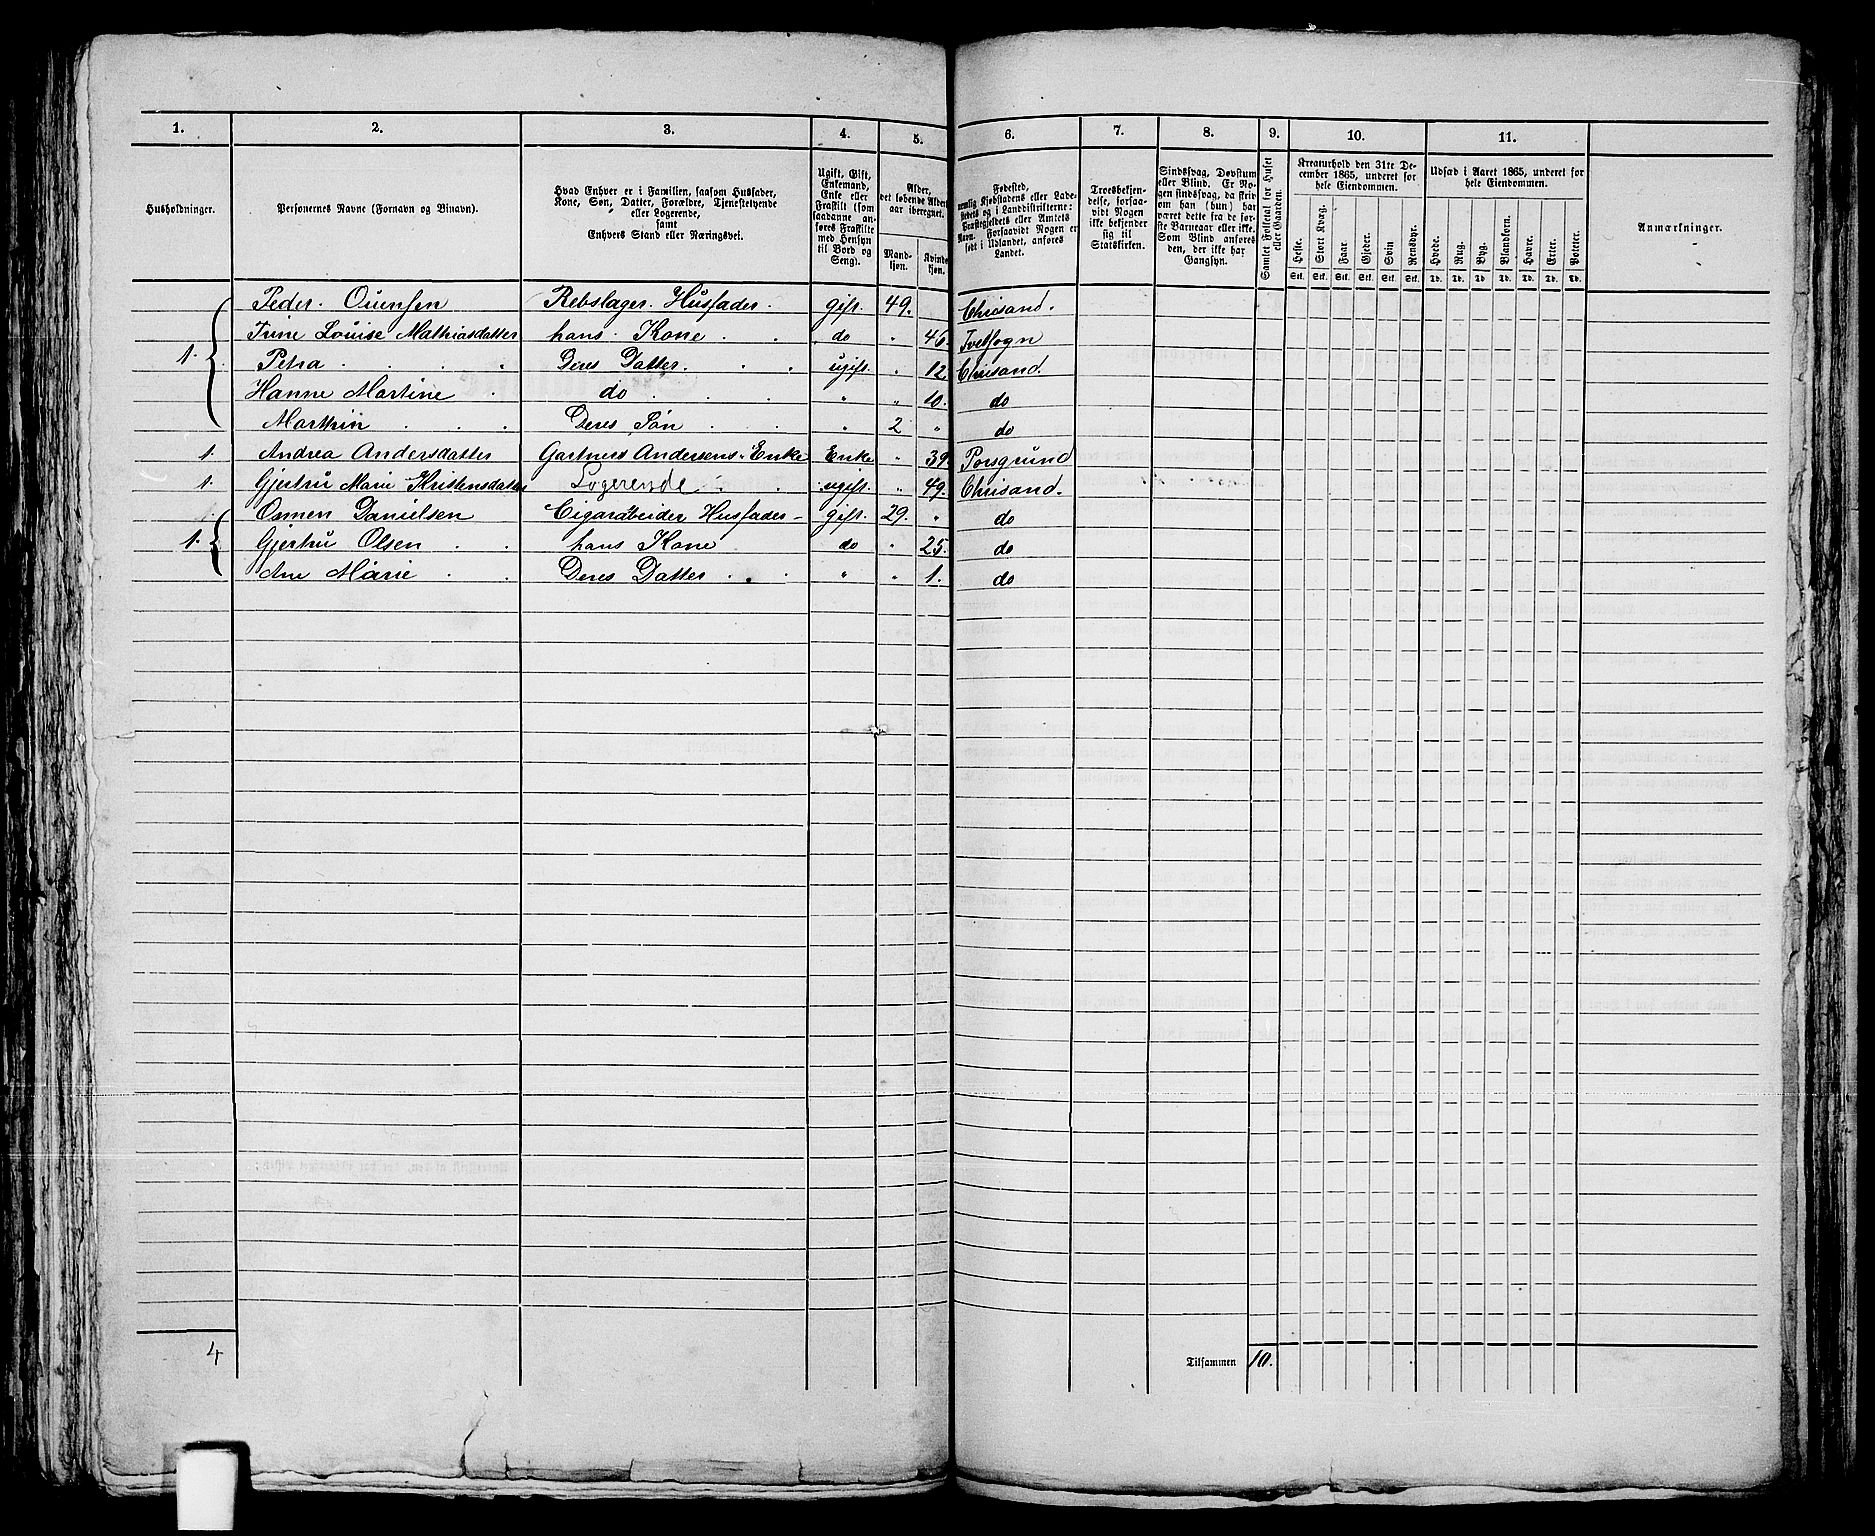 1. 2. 3. 4. 5. 6. 7. 8. 9. 10. 11.
Husholdninger.
Personernes Navne (Fornavn og Binavn).
Hvad Enhver er i Familien, saasom Husfader,
Kone, Søn, Datter, Forældre, Tjenestetyende
eller Logerende,
samt
Enhvers Stand eller Næringsvei.
Ugift, Gift,
Enkemand,
Enke eller
Fraskilt (som
saadanne an-
føres Fraskilte
med Hensyn
til Bord og
Seng).
Alder,
det løbende Alders-
aar iberegnet.
Mand-
kjøn.
Kvinde-
kjøn.
Fødested,
nemlig Kjøbstadens eller Lade-
stedets og i Landdistrikterne:
Præstegjeldets eller Amtets
Navn. Forsaavidt Nogen er
født i Udlandet, anføres
Landet.
Troesbekjen-
delse, forsaa-
vidt Nogen
ikke bekjender
sig til
Statskirken.
Sindssvag, Døvstum
eller Blind. Er No-
gen sindssvag, da skriv
om han (hun) har
været dette fra de før-
ste Barneaar eller ikke.
Som Blind anføres
den, der ikke har
Gangsyn.
Samlet Folketal for Huset
eller Gaarden.
Kreaturhold den 31te De-
cember 1865, underet for
hele Eiendommen.
Heste. Stort Kvæg. Faar. Gjeder. Svin Rensdyr.
Stk. Stk. Stk. Stk. Stk. Stk.
Udsæd i Aaret 1865, underet for
hele Eiendommen.
Hvede. Rug. Byg. Blandkorn. Havre. Erter. Poteter.
Td. Td. Td. Td. Td. Td. Td.
Anmærkninger.
Peder Ouensen Rebslager. Husfader. gift. 49. Chrisand.
Trine Louise Mathiasdatter hans Kone do " 46 Tvetsogn
1. Petra Deres Datter. ugift. " 12 Chrisand.
Hanne Martine do " " 10. do
Marthin Deres Søn " 2 " do
1. Andrea Andersdatter Gartner Andersens Enke Enke " 39. Porsgrund
1. Gjertru Marie Kristensdatter Logerende ugift. " 49. Chrisand.
Osmen Danielsen Cigarabeider Husfader gift. 29. " do
1. Gjertru Olsen hans Kone do " 25. do
Ane Marie Deres Datter " " 1. do
4
Tilsammen 10.